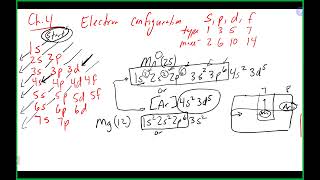 Ch.4 Electron Configuration S, p, d, f
type 1 3 5 7
max 2 6 10 14
Start
1s
2s 2p
3s 3p 3d
4s 4p 4d 4f
5s 5p 5d 5f
6s 6p 6d
7s 7p
Mn (25)
1s² 2s² 2p⁶ 3s² 3p⁶ 4s² 3d⁵
or
[Ar] 4s² 3d⁵
Mg (12) 1s² 2s² 2p⁶ 3s²
or
7 8